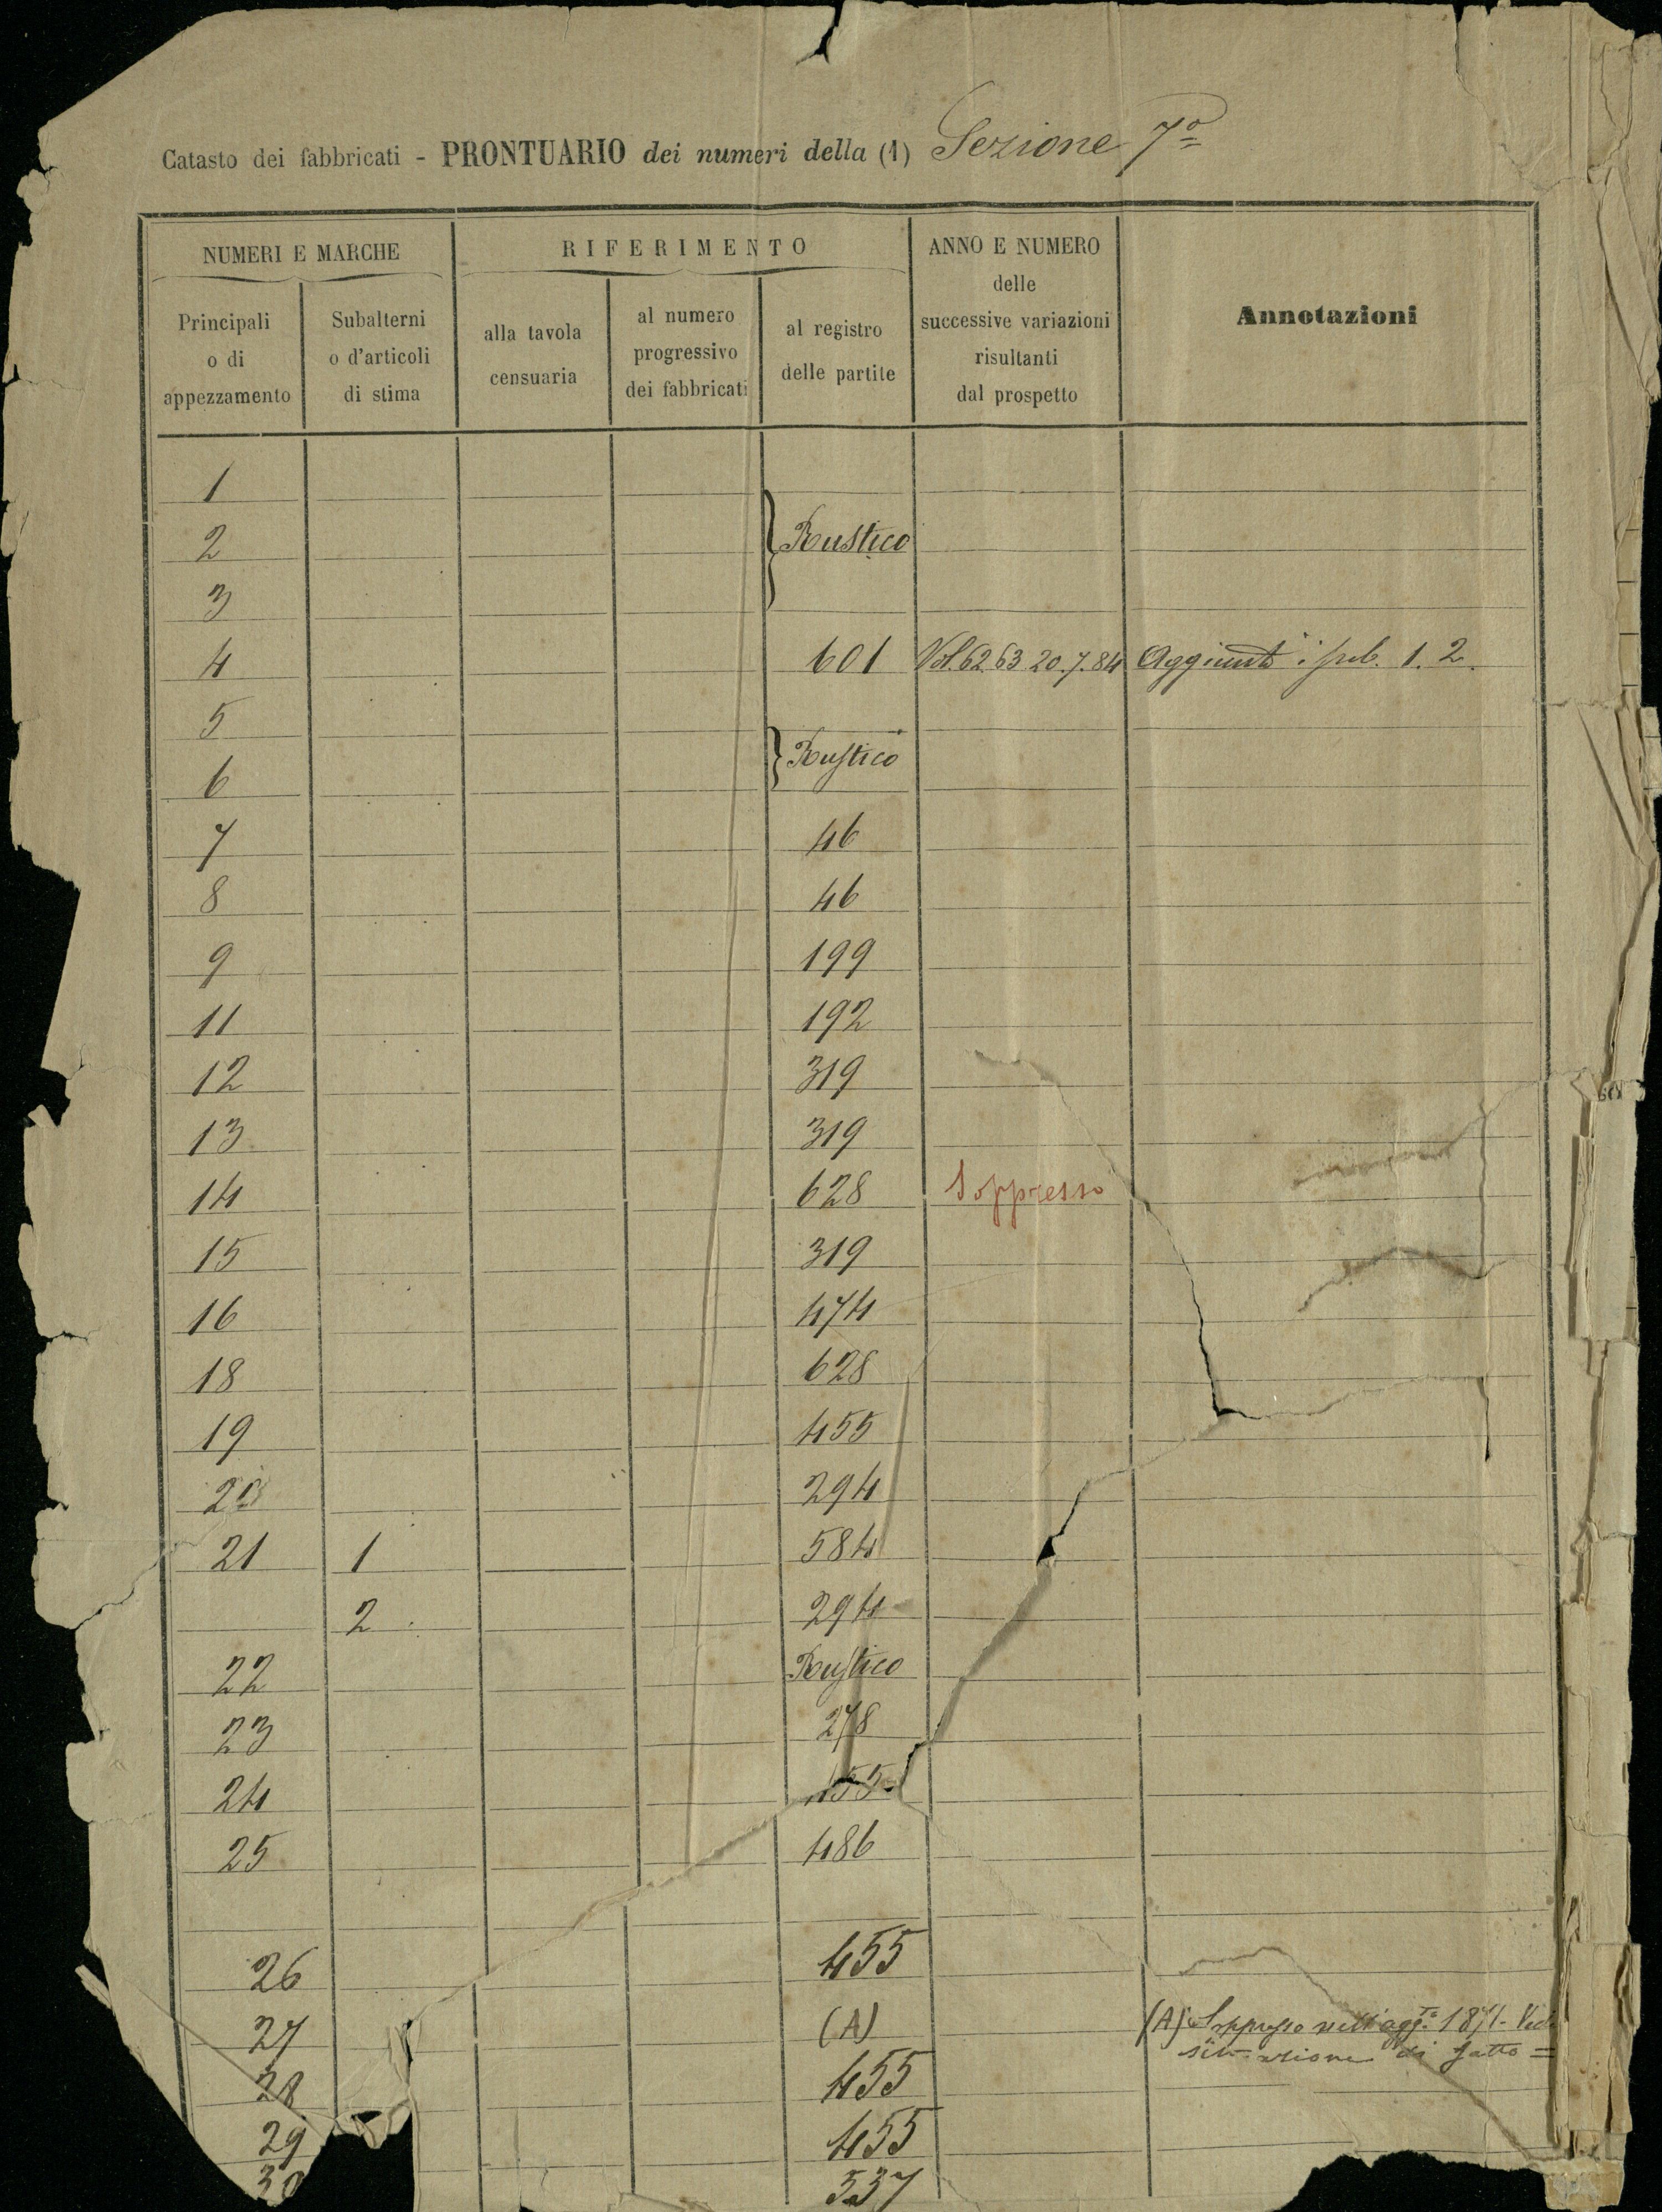 Catasto dei fabbricati - PRONTUARIO dei numeri della (1) Sezione 7ª
NUMERI E MARCHE
RIFERIMENTO
ANNO E NUMERO
delle
successive variazioni
risultanti
dal prospetto
Annotazioni
Principali
o di
appezzamento
Subalterni
o d'articoli
di stima
alla tavola
censuaria
al numero
progressivo
dei fabbricati
al registro
delle partite
1
2 Rustico
3
4 601 Vol. 62 63 20.7.84 Aggiunti i sub. 1. 2.
5
6 Rustico
7 46
8 46
9 199
11 192
12 319
13 319
14 628 Soppresso
15 319
16 474
18 628
19 455
20 294
21 1 584
2 294
22 Rustico
23 278
24 455
25 486
26 455
27 (A) (A) Soppresso nell'agg.to 1871- Vedi
situazione di fatto =
28 455
29 455
30 537